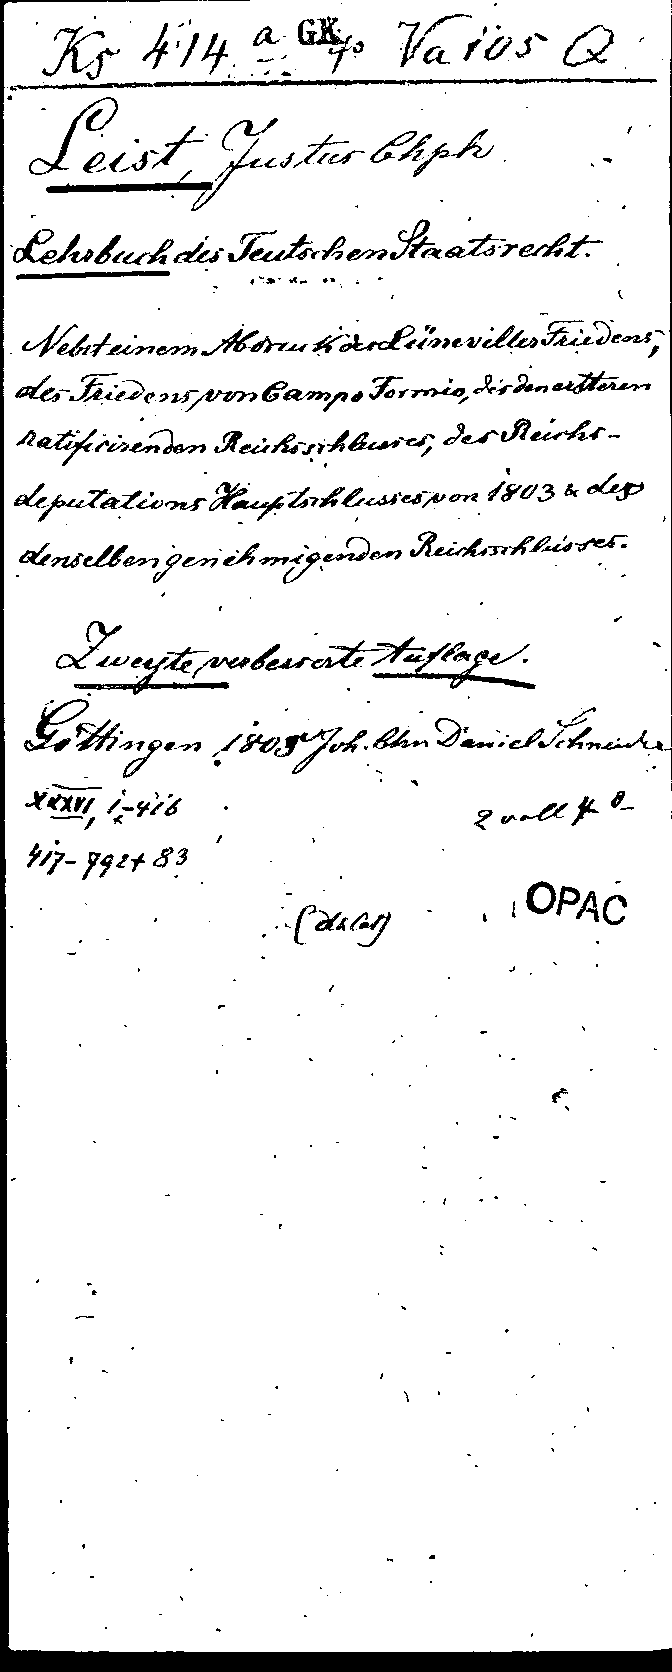 Ks 414 a GK Va 105 Q
Leist, Justus Chph
Lehrbuch des Teutschen Staatsrecht.
Nebst einem Abdruck des Lüneviller Friedens,
des Friedens von Campo Formio, des den ersteren
ratificirenden Reichsschlusses, des Reichs-
deputations Hauptschlusses von 1803 & des
denselben genehmigenden Reichsschlusses.
Zweyte verbesserte Auflage.
Göttingen 1805 Joh. Chn Daniel Schneider
XXXVI, 1-416
2 voll
417-792 + 83
OPAC